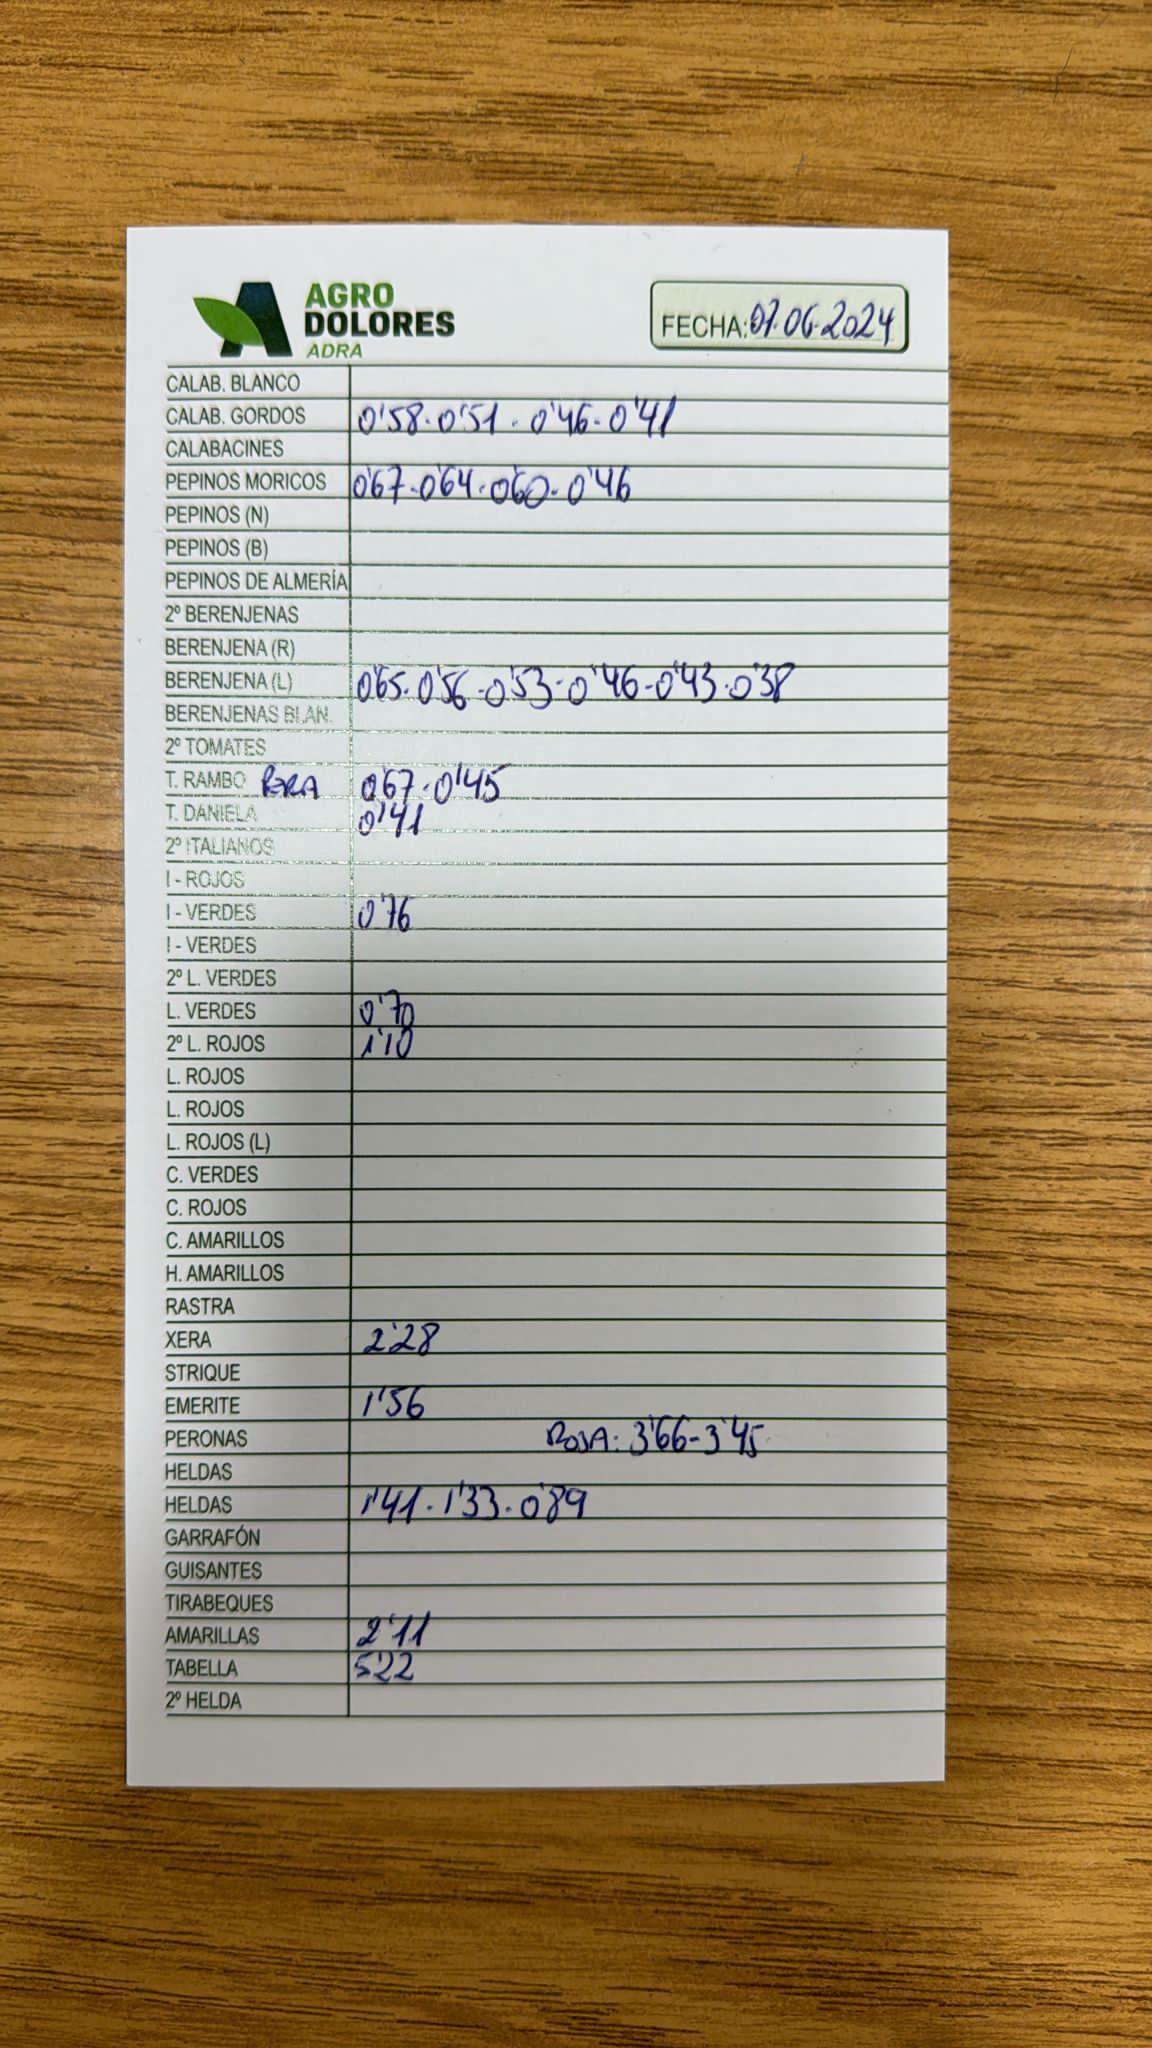 AGRO
DOLORES
ADRA
FECHA: 07.06.2024
CALAB. BLANCO
CALAB. GORDOS 0'58-0'51-0'46-0'41
CALABACINES
PEPINOS MORICOS 0'67-0'64-0'60-0'46
PEPINOS (N)
PEPINOS (B)
PEPINOS DE ALMERÍA
2º BERENJENAS
BERENJENA (R)
BERENJENA (L) 0'65-0'56-0'53-0'46-0'43-0'38
BERENJENAS BLAN.
2º TOMATES
T. RAMBO PERA 0'67-0'45
T. DANIELA 0'41
2º ITALIANOS
I - ROJOS
I - VERDES 0'76
I - VERDES
2º L. VERDES
L. VERDES 0'70
2º L. ROJOS 1'10
L. ROJOS
L. ROJOS
L. ROJOS (L)
C. VERDES
C. ROJOS
C. AMARILLOS
H. AMARILLOS
RASTRA
XERA 2'28
STRIQUE
EMERITE 1'56
PERONAS ROJA: 3'66-3'45
HELDAS
HELDAS 1'41-1'33-0'89
GARRAFÓN
GUISANTES
TIRABEQUES
AMARILLAS 2'11
TABELLA 5'22
2º HELDA